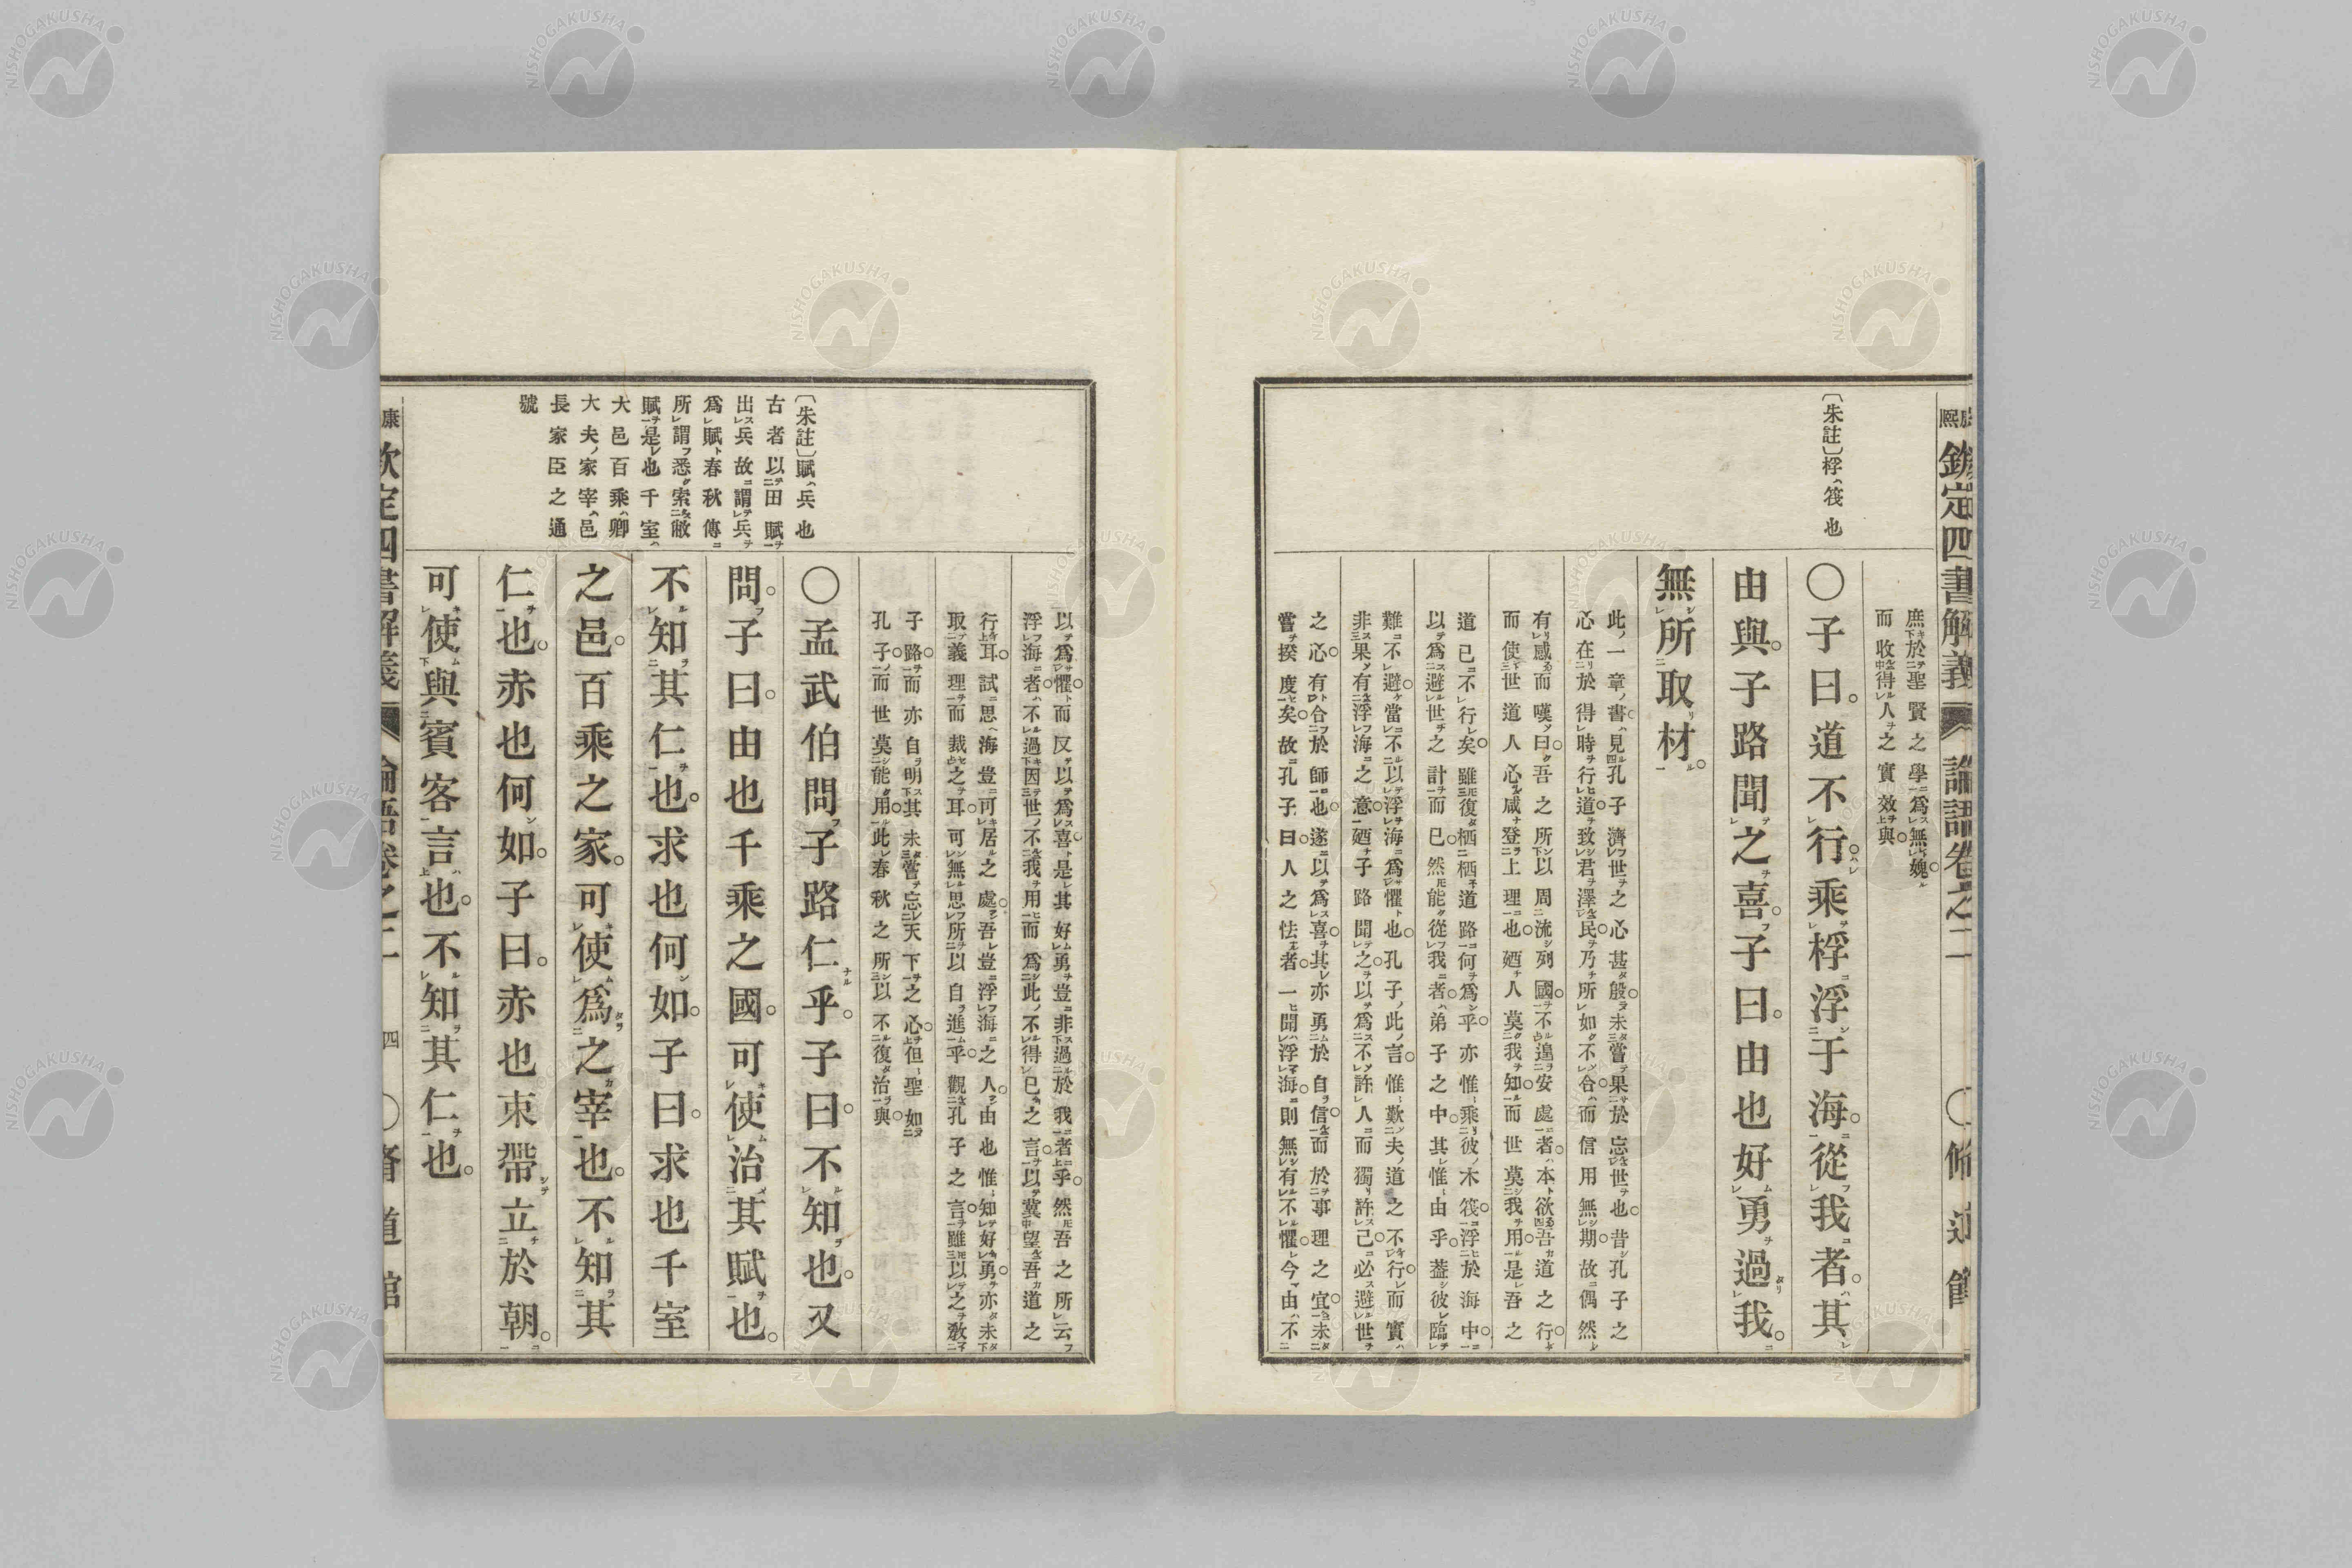 康熙
欽定四書解義
論語卷之二
〇脩道館
〔朱註〕桴ハ筏也
庶於聖賢之學爲無媿
而收得人之實效與
〇子曰道不行乘桴浮于海從我者其
由與子路聞之喜子曰由也好勇過我
無所取材
此一章書見孔子濟世之心甚殷未嘗果於忘世也昔孔子之
心在於得時行道致君澤民乃所如不合而信用無期故偶然
有感而嘆曰吾之所以周流列國不遑安處者本欲吾道之行
而使世道人心咸登上理也廼人莫我知而世莫我用是吾之
道已不行矣雖復栖栖道路何爲乎亦惟乘彼木筏浮於海中
以爲避世之計而已然能從我者弟子之中其惟由乎葢彼臨
難不避當不以浮海爲懼也孔子此言惟歎夫道之不行而實
非果有浮海之意廼子路聞之以爲不許人而獨許己必避世
之心有合於師也遂以爲喜其亦勇於自信而於事理之宜未
嘗揆度矣故孔子曰人之怯者一聞浮海則無有不懼今由不
以爲懼而反以爲喜是其好勇豈非過於我者乎然吾之所云
浮海者不過因世不我用而爲此不得已之言以冀望吾道之
行耳試思海豈可居之處吾豈浮海之人由也惟知好勇亦未
取義理而裁之耳可無思所以自進乎觀孔子之言雖以之敎
子路而亦自明其未嘗忘天下之心但聖如
孔子而世莫能用此春秋之所以不復治與
〔朱註〕賦ハ兵也
古者以田賦
出兵故謂兵
爲賦春秋傳
所謂悉索敝
賦是也千室
大邑百乘卿
大夫ノ家宰ハ邑
長家臣之通
號
〇孟武伯問子路仁乎子曰不知也又
問子曰由也千乘之國可使治其賦也
不知其仁也求也何如子曰求也千室
之邑百乘之家可使爲之宰也不知其
仁也赤也何如子曰赤也束帶立於朝
可使與賓客言也不知其仁也
康
欽定四書解義
論語卷之二
四
〇脩道館